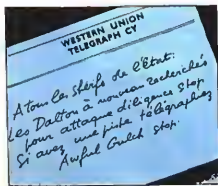 WESTERN UNION
TELEGRAPH CY
A tous les shérifs de l'état:
Les Dalton à nouveau recherchés
pour attaque diligence stop
Si avez une piste télégraphiez
Awful Gulch stop.